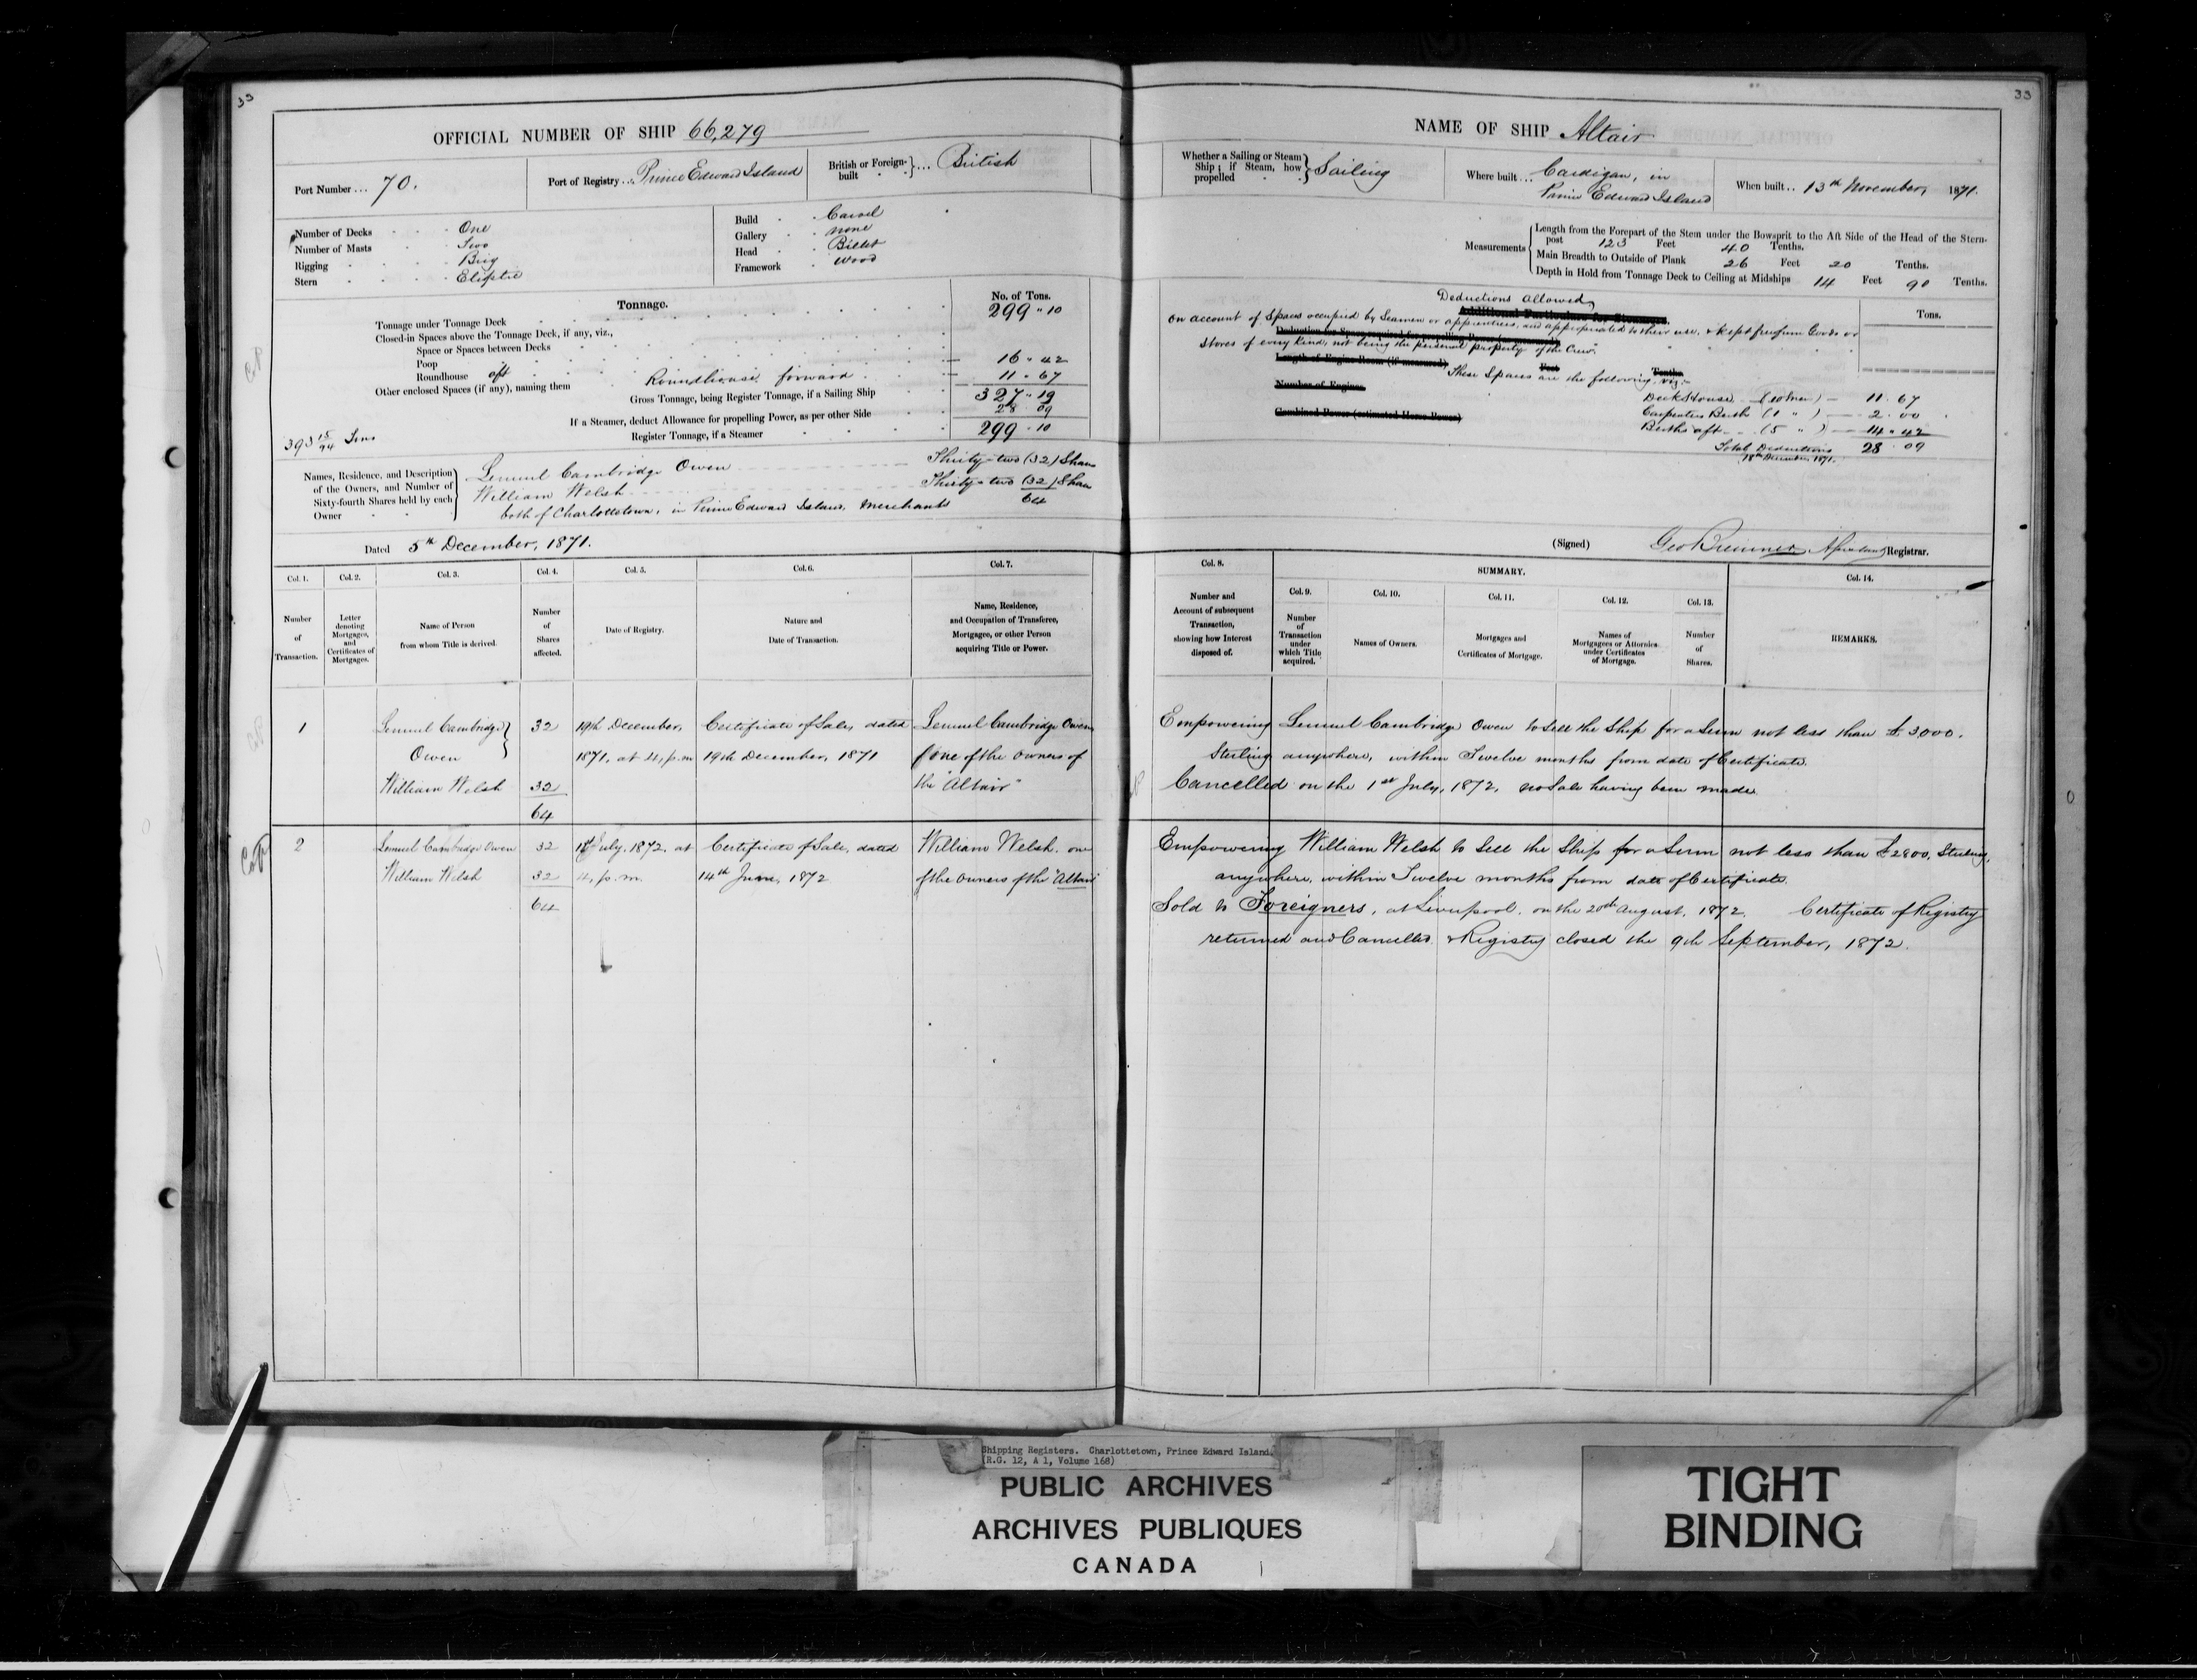 33
OFFICIAL NUMBER OF SHIP 66,279
Port Number ... 70.
Port of Registry ... Prince Edward Island
British or Foreign-built ... British
Number of Decks One
Number of Masts Two
Rigging Brig
Stern Eliptic
Build Carvel
Gallery none
Head Billet
Framework Wood
Tonnage.
No. of Tons.
Tonnage under Tonnage Deck 299 " 10
Closed-in Spaces above the Tonnage Deck, if any, viz.,
Space or Spaces between Decks
Poop
Roundhouse aft 16 " 42
Other enclosed Spaces (if any), naming them Roundhouse forward 11 " 67
Gross Tonnage, being Register Tonnage, if a Sailing Ship 327 " 19
If a Steamer, deduct Allowance for propelling Power, as per other Side 28 09
Register Tonnage, if a Steamer 299 " 10
393 15/94 Tons
Names, Residence, and Description of the Owners, and Number of Sixty-fourth Shares held by each Owner
Lemuel Cambridge Owen Thirty-two (32) Shares
William Welsh Thirty-two (32) Shares
64
both of Charlottetown, in Prince Edward Island, Merchants
Dated 5th December, 1871.
Col. 1. Col. 2. Col. 3. Col. 4. Col. 5. Col. 6. Col. 7.
Number of Transaction.
Letter denoting Mortgages, and Certificates of Mortgages.
Name of Person from whom Title is derived.
Number of Shares affected.
Date of Registry.
Nature and Date of Transaction.
Name, Residence, and Occupation of Transferee, Mortgagee, or other Person acquiring Title or Power.
1 Lemuel Cambridge 32 19th December, Certificate of Sale, dated Lemuel Cambridge Owen
Owen 1871, at 4, p.m 19th December, 1871 one of the Owners of
William Welsh 32 the "Altair"
64
2 Lemuel Cambridge Owen 32 1st July, 1872, at Certificate of Sale, dated William Welsh, one
William Welsh 32 4, p.m. 14th June, 1872 of the Owners of the "Altair"
64
33
NAME OF SHIP Altair
Whether a Sailing or Steam Ship; if Steam, how propelled Sailing
Where built ... Cardigan, in
Prince Edward Island
When built .. 13th November, 1871.
Measurements
Length from the Forepart of the Stem under the Bowsprit to the Aft Side of the Head of the Stern-
post 123 Feet 40 Tenths.
Main Breadth to Outside of Plank 26 Feet 20 Tenths.
Depth in Hold from Tonnage Deck to Ceiling at Midships 14 Feet 90 Tenths.
Deductions allowed,
Additional Particulars for Steamers.
Tons.
On account of Spaces occupied by Seamen or apprentices, and appropriated to their use, & kept free from Goods or
Stores of every kind, not being the personal property of the Crew.
Length of Engine Room (if measured) Feet Tenths
These Spaces are the following, viz:-
Number of Engines
Deck House (10 Men) 11 . 67
Combined Power (estimated Horse Power)
Carpenters Berth (1 " ) 2 . 00
Berths aft (5 " ) 14 . 42
Total Deductions 28 . 09
18th December, 1871.
(Signed) Geo Bremner, Registrar.
Col. 8. SUMMARY. Col. 14.
Col. 9. Col. 10. Col. 11. Col. 12. Col. 13.
Number and Account of subsequent Transaction, showing how Interest disposed of.
Number of Transaction under which Title acquired.
Names of Owners.
Mortgages and Certificates of Mortgage.
Names of Mortgagees or Attornies under Certificates of Mortgage.
Number of Shares.
REMARKS.
Empowering Lemuel Cambridge Owen to Sell the Ship for a Sum not less than £3000.
Sterling anywhere, within Twelve months from date of Certificate.
Cancelled on the 1st July, 1872, no Sale having been made.
Empowering William Welsh to Sell the Ship for a Sum not less than £2800, Sterling,
anywhere, within Twelve months from date of Certificate.
Sold to Foreigners, at Liverpool, on the 20th August, 1872. Certificate of Registry
returned and Cancelled & Registry closed the 9th September, 1872.
Shipping Registers. Charlottetown, Prince Edward Island.
(R.G. 12, A 1, Volume 168)
PUBLIC ARCHIVES
ARCHIVES PUBLIQUES
CANADA
TIGHT
BINDING